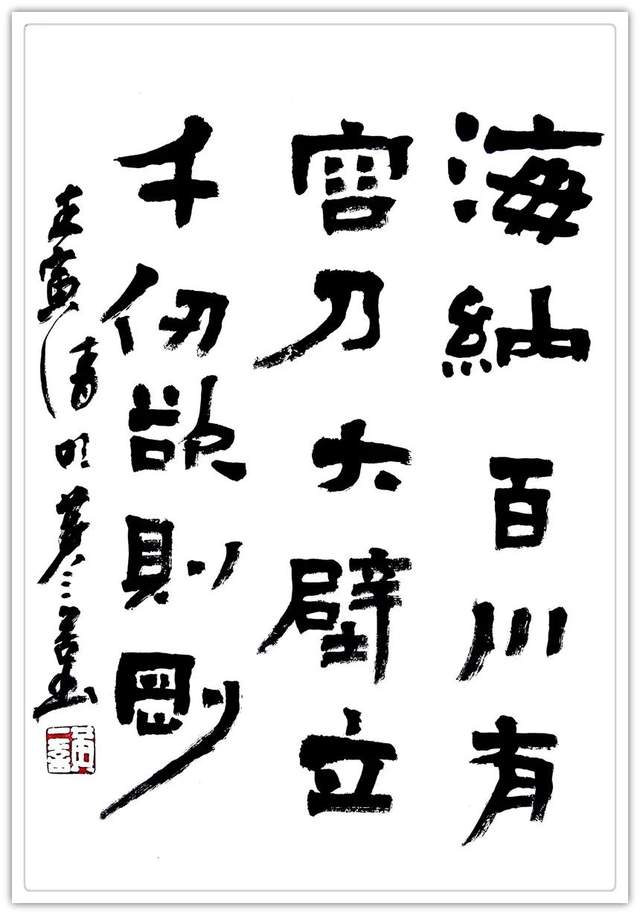 海納百川有
容乃大壁立
千仞欲則剛
壬寅清明